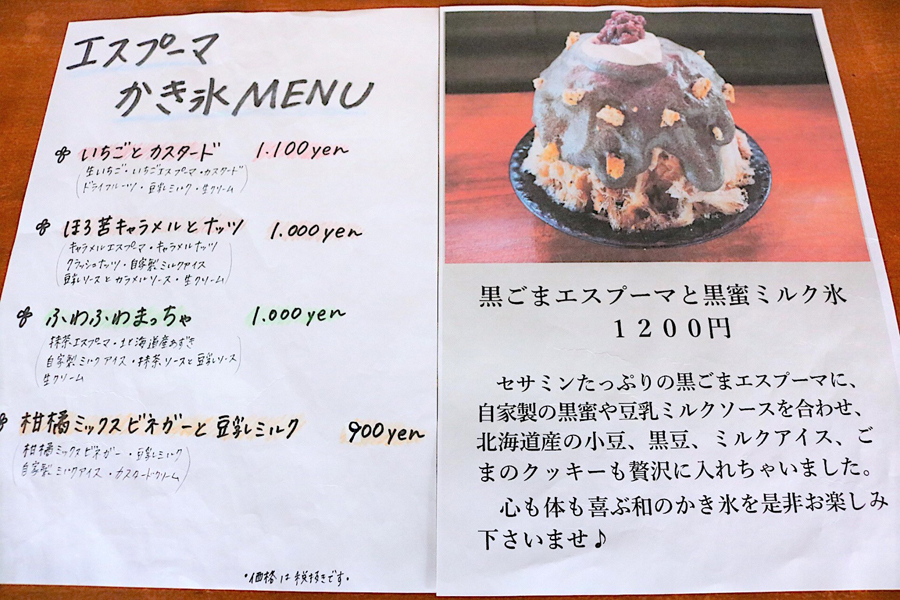 エスプーマ
かき氷MENU
いちごとカスタード 1.100yen
(生いちご・いちごエスプーマ・カスタード
ドライフルーツ・豆乳ミルク・生クリーム)
ほろ苦キャラメルとナッツ 1.000yen
(キャラメルエスプーマ・キャラメルナッツ
クラッシュナッツ・自家製ミルクアイス
豆乳ソースとカラメルソース・生クリーム)
ふわふわまっちゃ 1.000yen
(抹茶エスプーマ・北海道産あずき
自家製ミルクアイス・抹茶ソースと豆乳ソース
生クリーム)
柑橘ミックスビネガーと豆乳ミルク 900yen
(柑橘ミックスビネガー・豆乳ミルク
自家製ミルクアイス・カスタードクリーム)
・価格は税抜きです。
黒ごまエスプーマと黒蜜ミルク氷
1200円
セサミンたっぷりの黒ごまエスプーマに、
自家製の黒蜜や豆乳ミルクソースを合わせ、
北海道産の小豆、黒豆、ミルクアイス、ご
まのクッキーも贅沢に入れちゃいました。
心も体も喜ぶ和のかき氷を是非お楽しみ
下さいませ♪